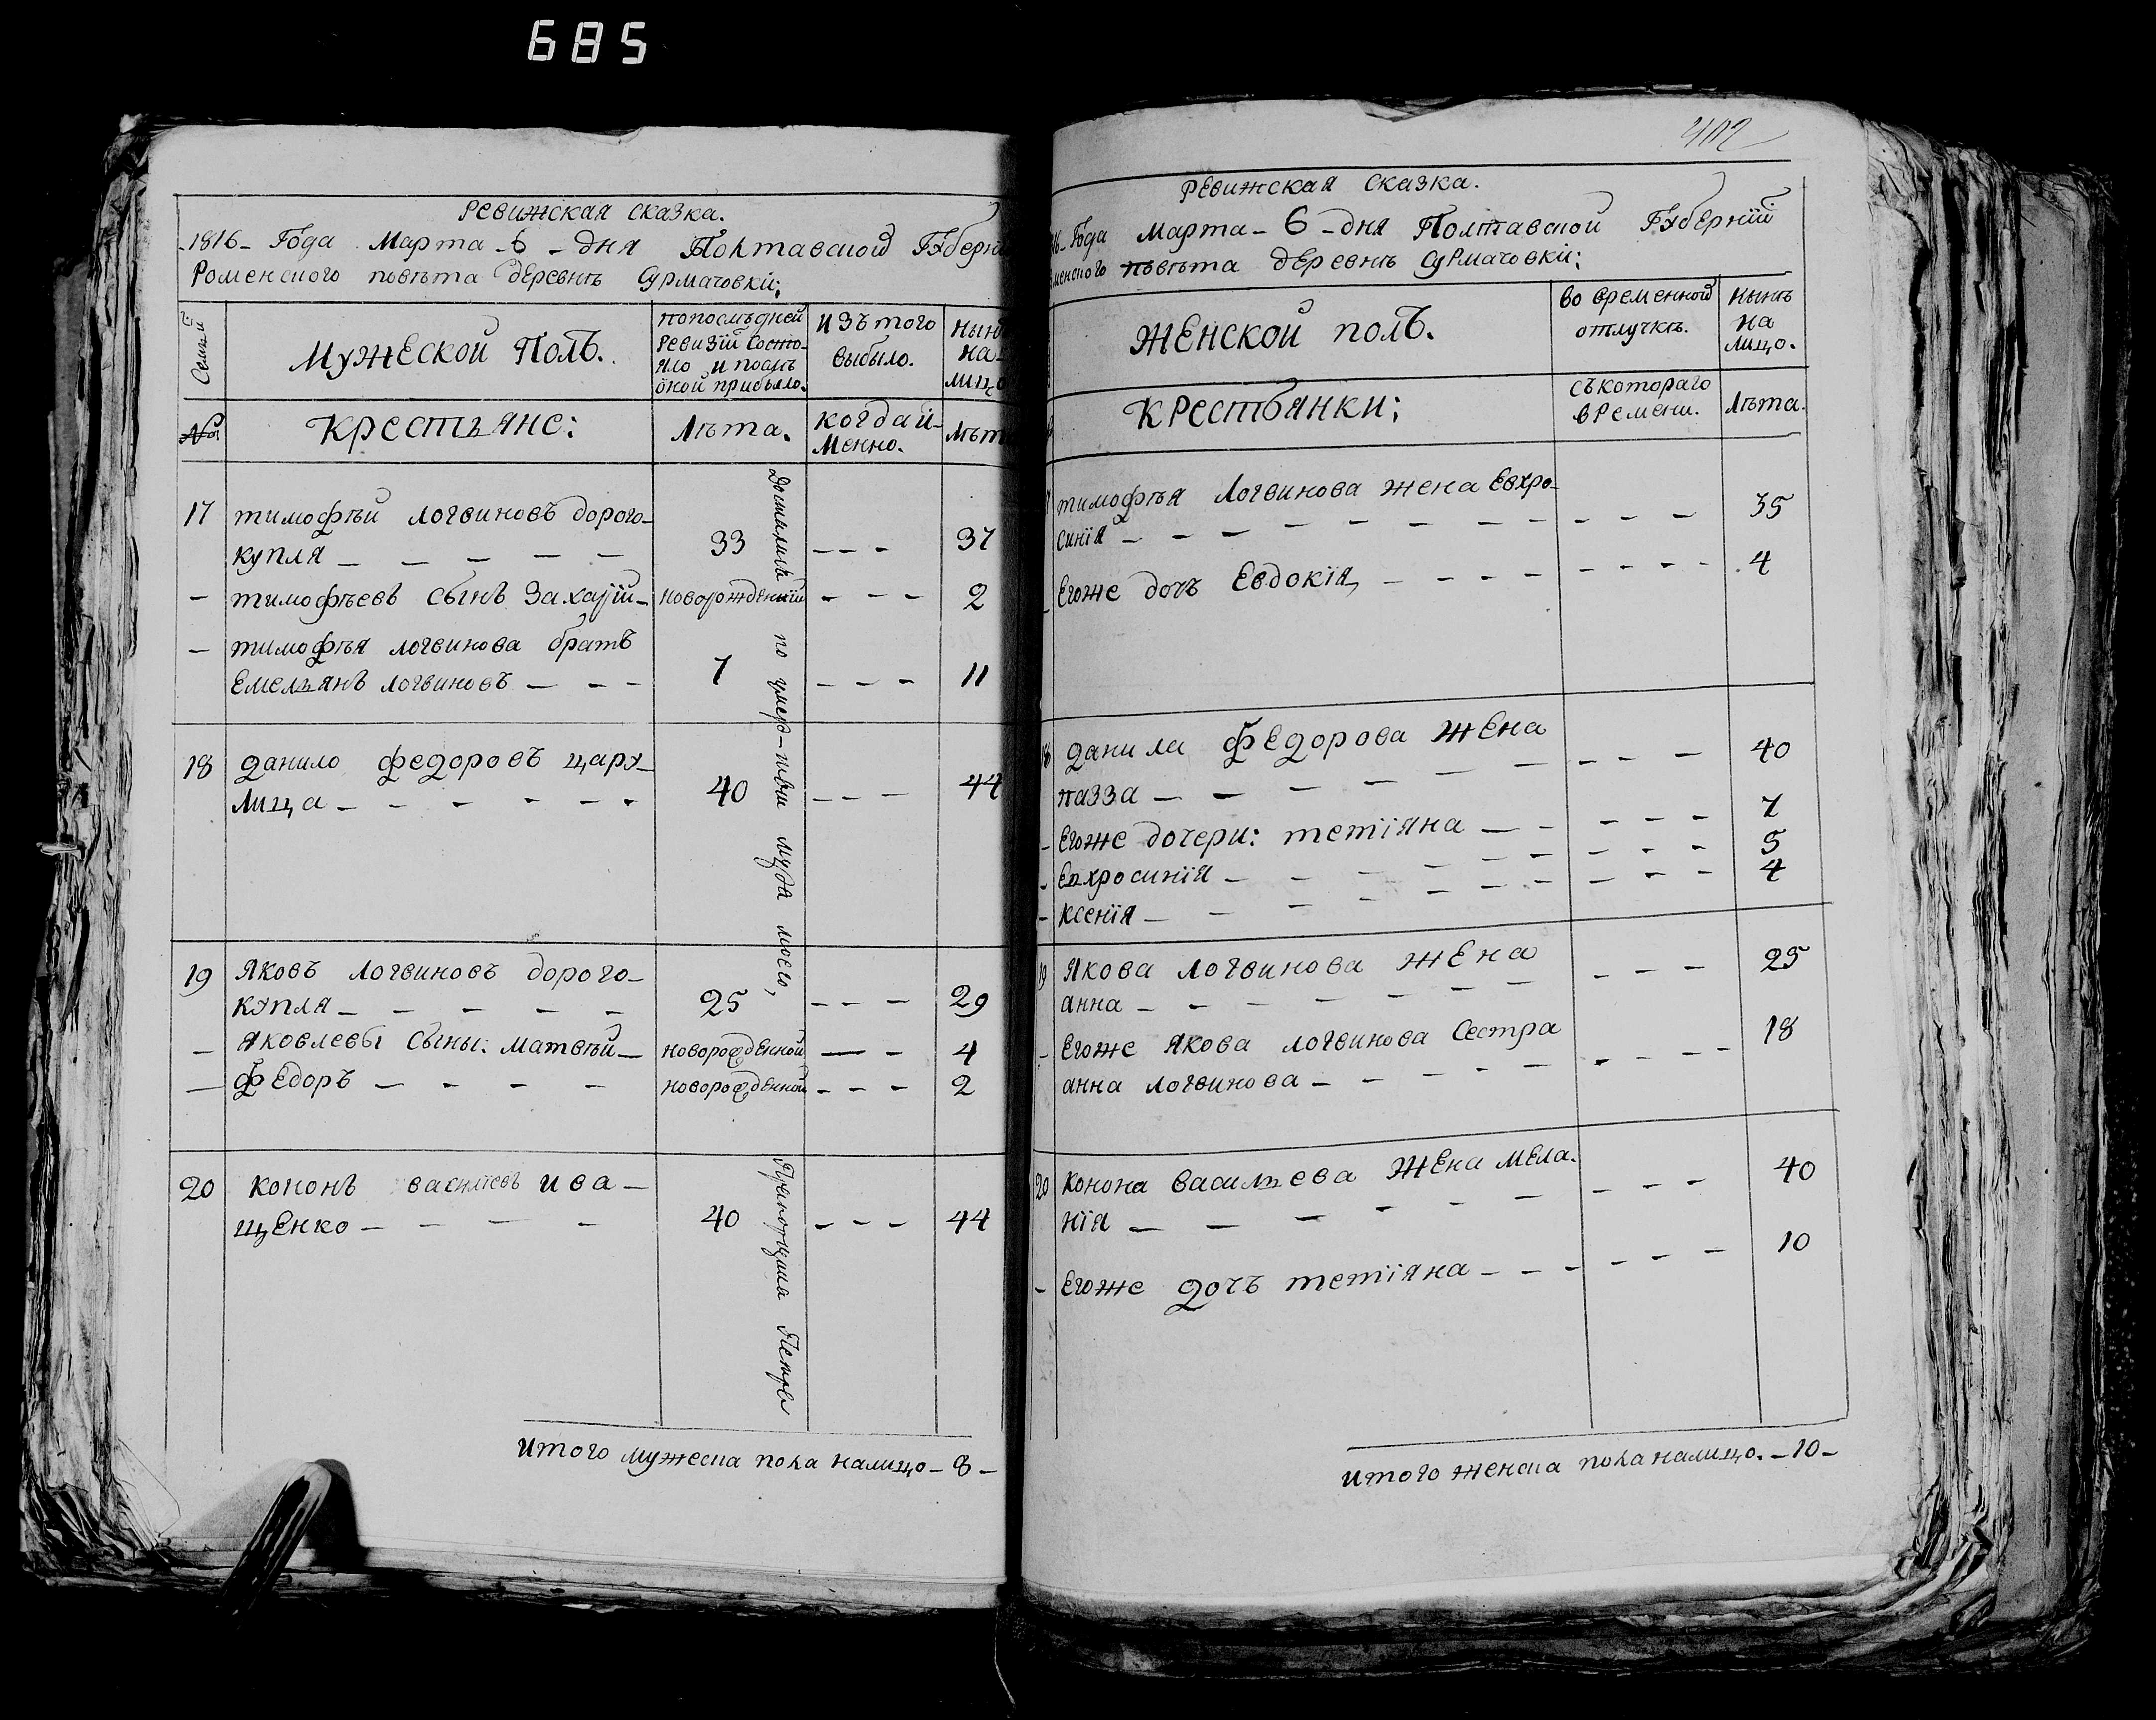 685
Ревижская сказка.
-1816- Года Марта -6- дня Полтавской Губерн
Роменского повѣта деревнѣ Сурмачовки:
Семьи
Мужеской Полъ.
попослѣдней
ревизіи состо-
яло и послѣ
оной прибыло.
изъ того
выбыло.
нынѣ
на
лицо
№
Крестьяне:
Лѣта.
когда и-
менно.
Лѣт
17 тимофѣй логвиновъ дорого-
купля — — — — — 33 - - - 37
— тимофѣевъ сынъ Захарій — новорожденній - - - 2
— тимофѣя логвинова братъ
Емельянъ логвиновъ — — — 7 - - - 11
18 данило федоровъ цару-
лица — — — — — — 40 - - - 44
19 Яковъ логвиновъ дорого-
купля — — — — — 25 - - - 29
— яковлевы сыны: матвѣй — новорожденной - - - 4
— федоръ — — — — новорожденной - - - 2
20 кононъ василіевъ ива-
щенко — — — — 40 - - - 44
по умер-шем мужа моего,
Прапорщика Петра
Итого мужеска пола налицо - 8 -
402
Ревижская Сказка.
16- Года Марта - 6 - дня Полтавской Губерніи
менского повѣта деревнѣ Сурмачовки:
Женской полъ.
во временной
отлучкѣ.
нынѣ
на
лицо.
Крестьянки:
съ котораго
времени.
Лѣта.
тимофѣя Логвинова жена Евхро-
синія — — — — — — — - - - 35
- Егоже дочъ Евдокія, - - - - - - - 4
18 данила федорова жена
пазза — — — — — — - - - 40
- Егоже дочери: тетіяна — — - - - 7
- Евхросинія — — — — — - - - 5
- ксенія — — — — — — - - - 4
19 якова логвинова жена
анна — — — — — — - - - 25
- Егоже якова логвинова сестра
анна логвинова — — — — - - - 18
20 конона васильева жена мела-
нія — — — — — — - - - 40
- Егоже дочъ тетіяна — - - - - - 10
Итого женска пола налицо. - 10 -